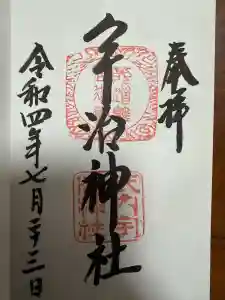 奉拝
宇治神社
令和四年七月二十三日